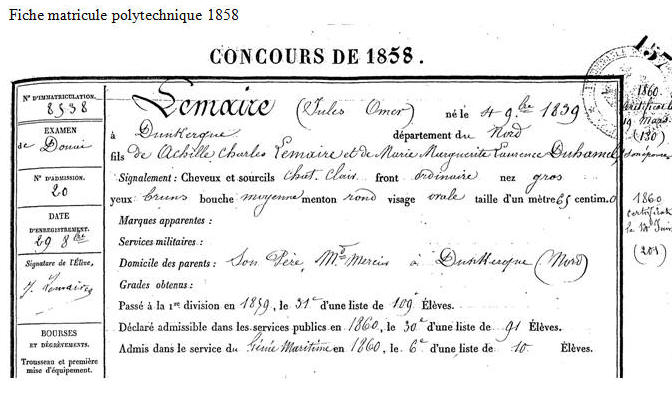 Fiche matricule polytechnique 1858
CONCOURS DE 1858.
157
N° D'IMMATRICULATION.
8538
EXAMEN
de Douai
N° D'ADMISSION.
20
DATE
D'ENREGISTREMENT.
29 8bre
Signature de l'Élève,
J. Lemaire
BOURSES
ET DÉGRÈVEMENTS.
Trousseau et première
mise d'équipement.
Lemaire (Jules Omer) né le 4 9bre 1839
à Dunkerque département du Nord
fils de Achille Charles Lemaire et de Marie Marguerite Laurence Duhamel
Signalement : Cheveux et sourcils chat. clair front ordinaire nez gros
yeux bruns bouche moyenne menton rond visage ovale taille d'un mètre 65 centim.
Marques apparentes :
Services militaires :
Domicile des parents : Son Père, Md Mercier à Dunkerque (Nord)
Grades obtenus :
Passé à la 1re division en 1859, le 31e d'une liste de 109 Élèves.
Déclaré admissible dans les services publics en 1860, le 30e d'une liste de 91 Élèves.
Admis dans le service du Génie Maritime en 1860, le 6e d'une liste de 10 Élèves.
1860
19 mars
(130)
1860
certificat
le 18 Juin
(201)